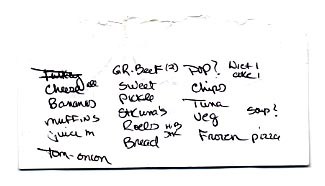 Turkey
cheese
Bananas
muffins
juice m
Tom-onion
GR. Beef (2)
sweet
pickle
Rolls H.B
Bread
POP? Diet 1
coke 1
Chips
Tuna
Veg soup?
Frozen pizza